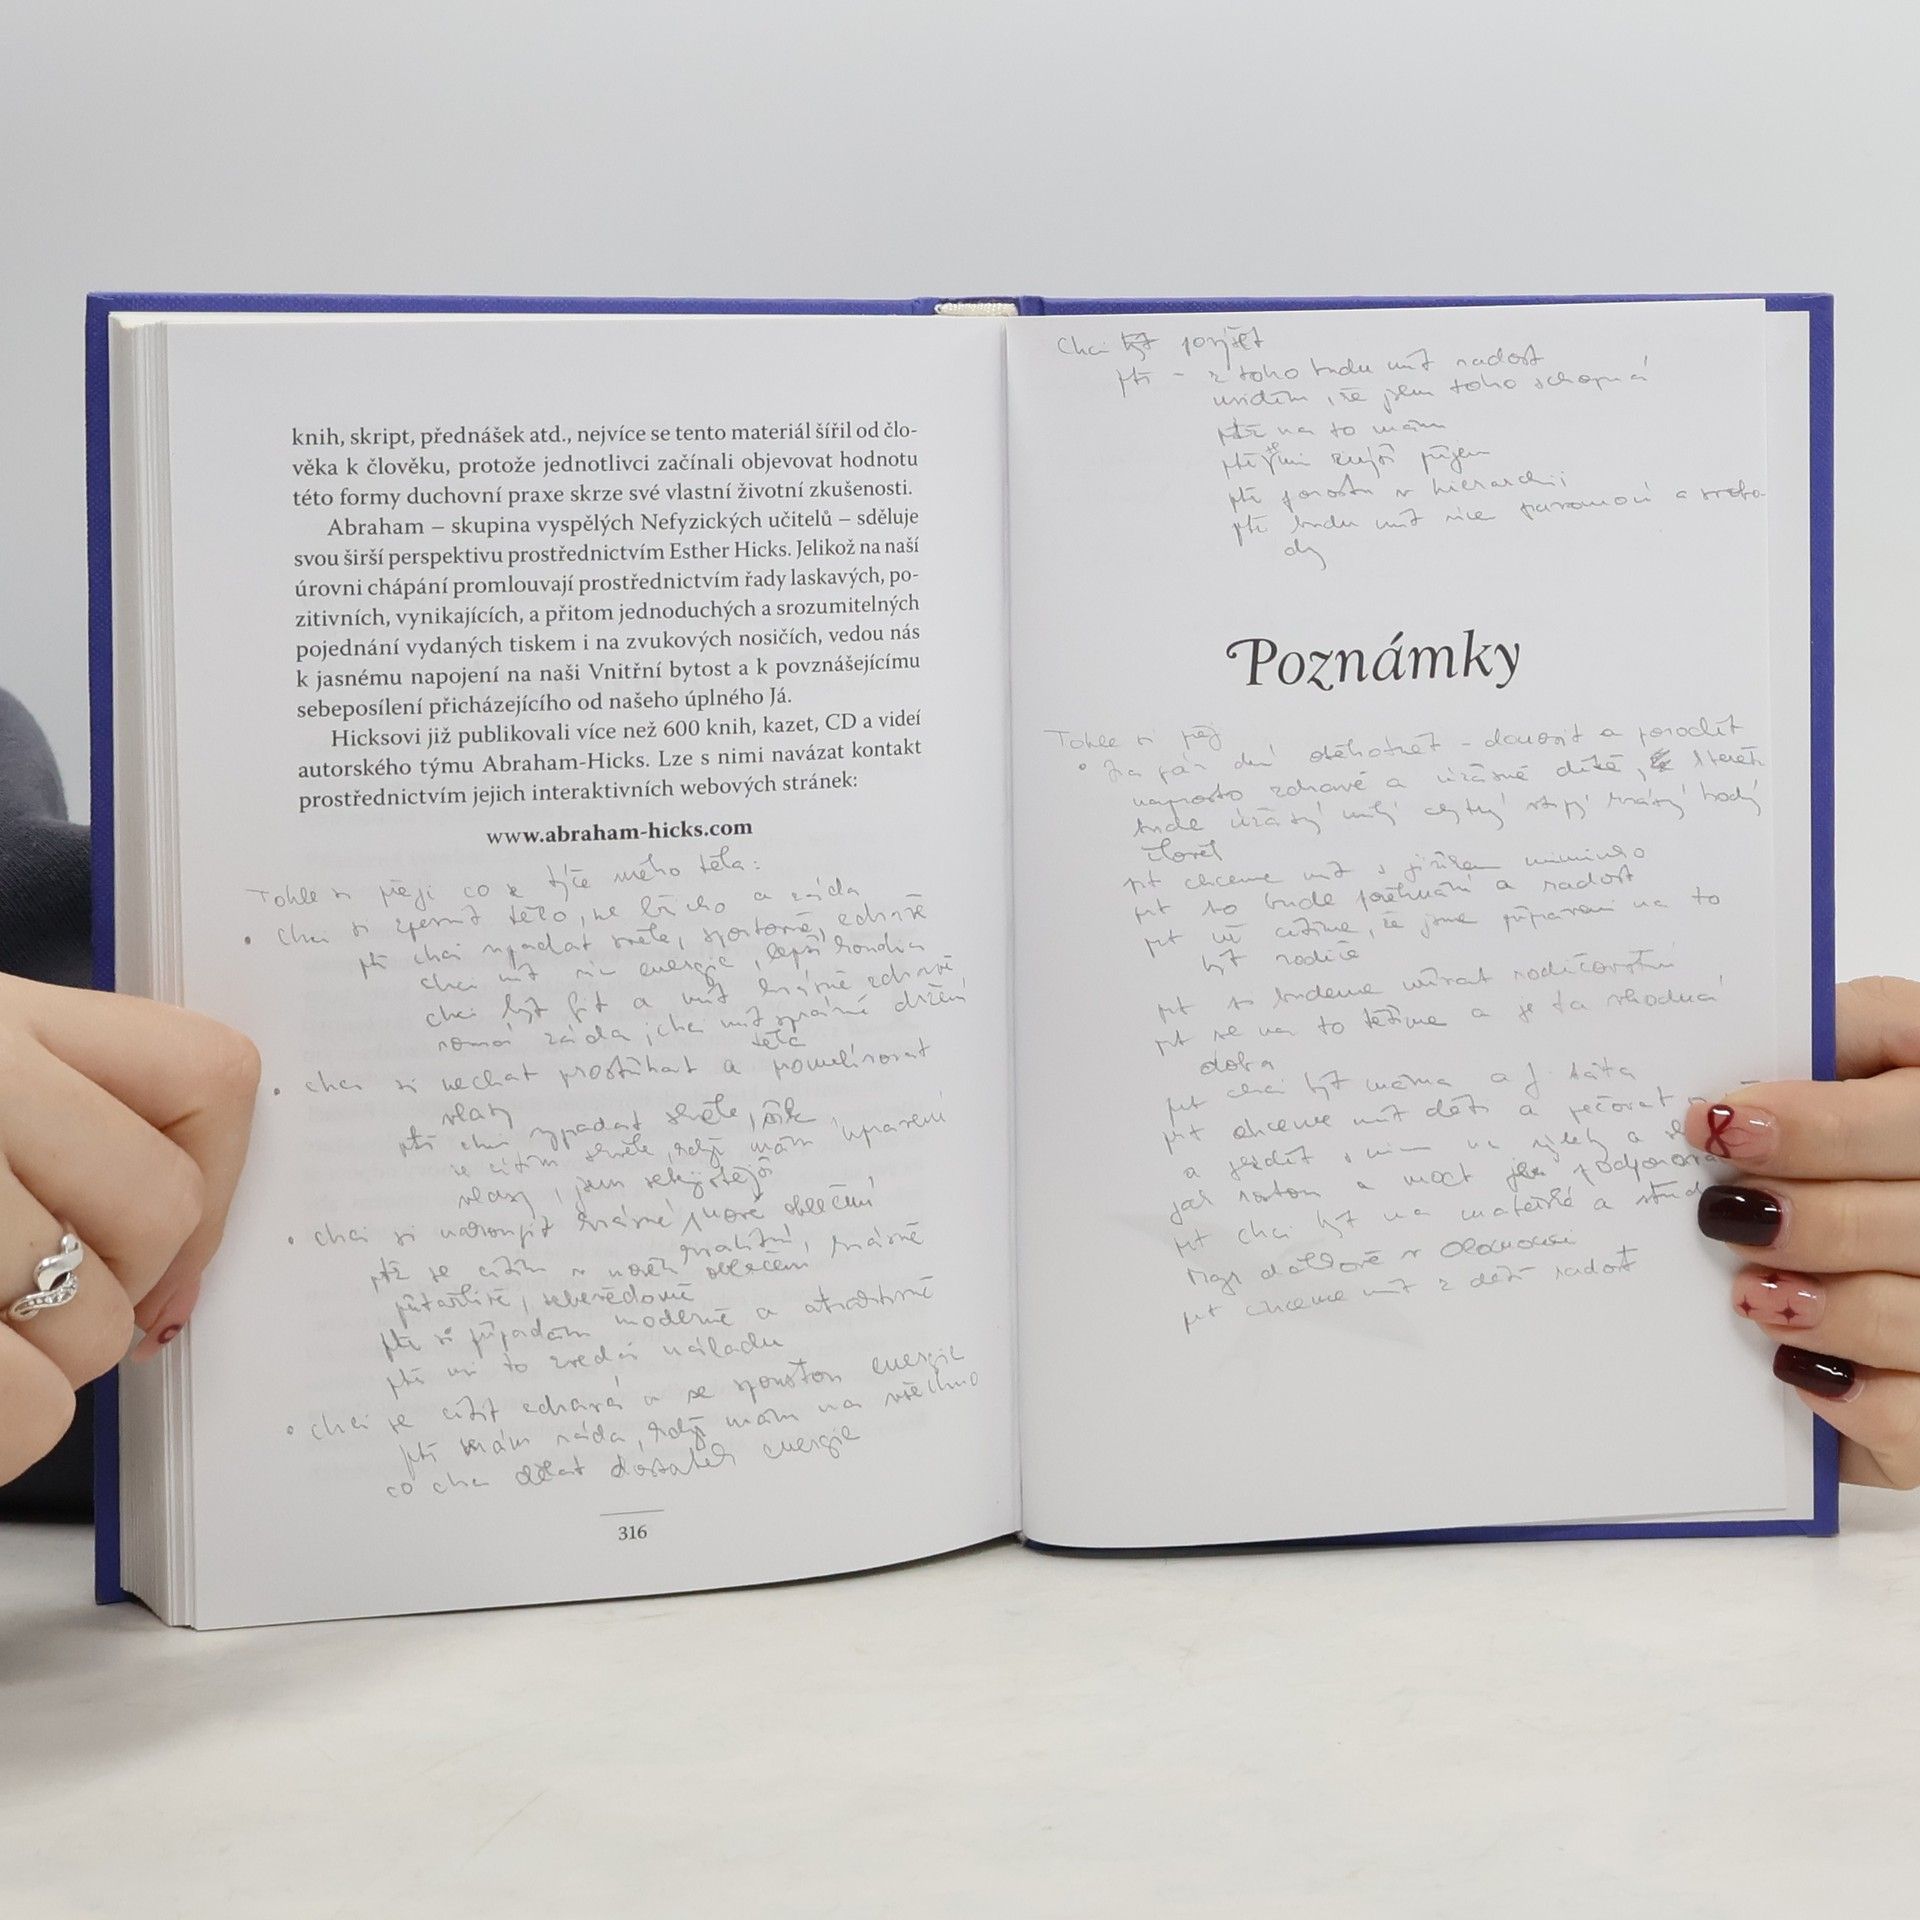 knih, skript, přednášek atd., nejvíce se tento materiál šířil od člo-
věka k člověku, protože jednotlivci začínali objevovat hodnotu
této formy duchovní praxe skrze své vlastní životní zkušenosti.
Abraham – skupina vyspělých Nefyzických učitelů – sděluje
svou širší perspektivu prostřednictvím Esther Hicks. Jelikož na naší
úrovni chápání promlouvají prostřednictvím řady laskavých, po-
zitivních, vynikajících, a přitom jednoduchých a srozumitelných
pojednání vydaných tiskem i na zvukových nosičích, vedou nás
k jasnému napojení na naši Vnitřní bytost a k povznášejícímu
sebeposílení přicházejícího od našeho úplného Já.
Hicksovi již publikovali více než 600 knih, kazet, CD a videí
autorského týmu Abraham-Hicks. Lze s nimi navázat kontakt
prostřednictvím jejich interaktivních webových stránek:
www.abraham-hicks.com
Tohle si přeji co se týče mého těla:
• chci si zpevnit tělo, břicho a záda
chci vypadat skvěle, sportovně, zdravě
chci mít víc energie, lepší kondici
chci být fit a mít krásné zdravé
rovná záda, chci mít správné držení
těla
• chci si nechat prostříhat a pomelírovat
vlasy
chci vypadat skvěle,
se cítím skvěle, když mám upravené
vlasy, jsem
• chci si nakoupit krásné nové oblečení
kvalitní,
ptž se cítím v novém oblečení krásně
přitažlivě, sebevědomě
si připadám moderně a atraktivně
mi to zvedá náladu
• chci se cítit zdravá a se spoustou energie
mám ráda, když mám na všechno
co chci dělat dostatek energie
316
Chci povýšit
– z toho budu mít radost
uvidím, že jsem toho schopná
na to mám
mi zvýší příjem
porostu v hierarchii
budu mít více pravomocí a svobo-
dy
Poznámky
Tohle si přeji
• Za pár dní otěhotnět – donosit a porodit
naprosto zdravé a úžasné dítě,
bude úžasný milý chytrý krásný hodný
člověk
chceme mít s miminko
to bude požehnání a radost
už cítíme, že jsme připraveni na to
být rodiče
si budeme užívat rodičovství
se na to těšíme a je ta vhodná
doba
chci být máma a J táta
chceme mít děti a pečovat
a jezdit s nimi na výlety a
jak rostou a moct je
chci být na mateřské a
Mgr dálkově v Olomouci
chceme mít z dětí radost